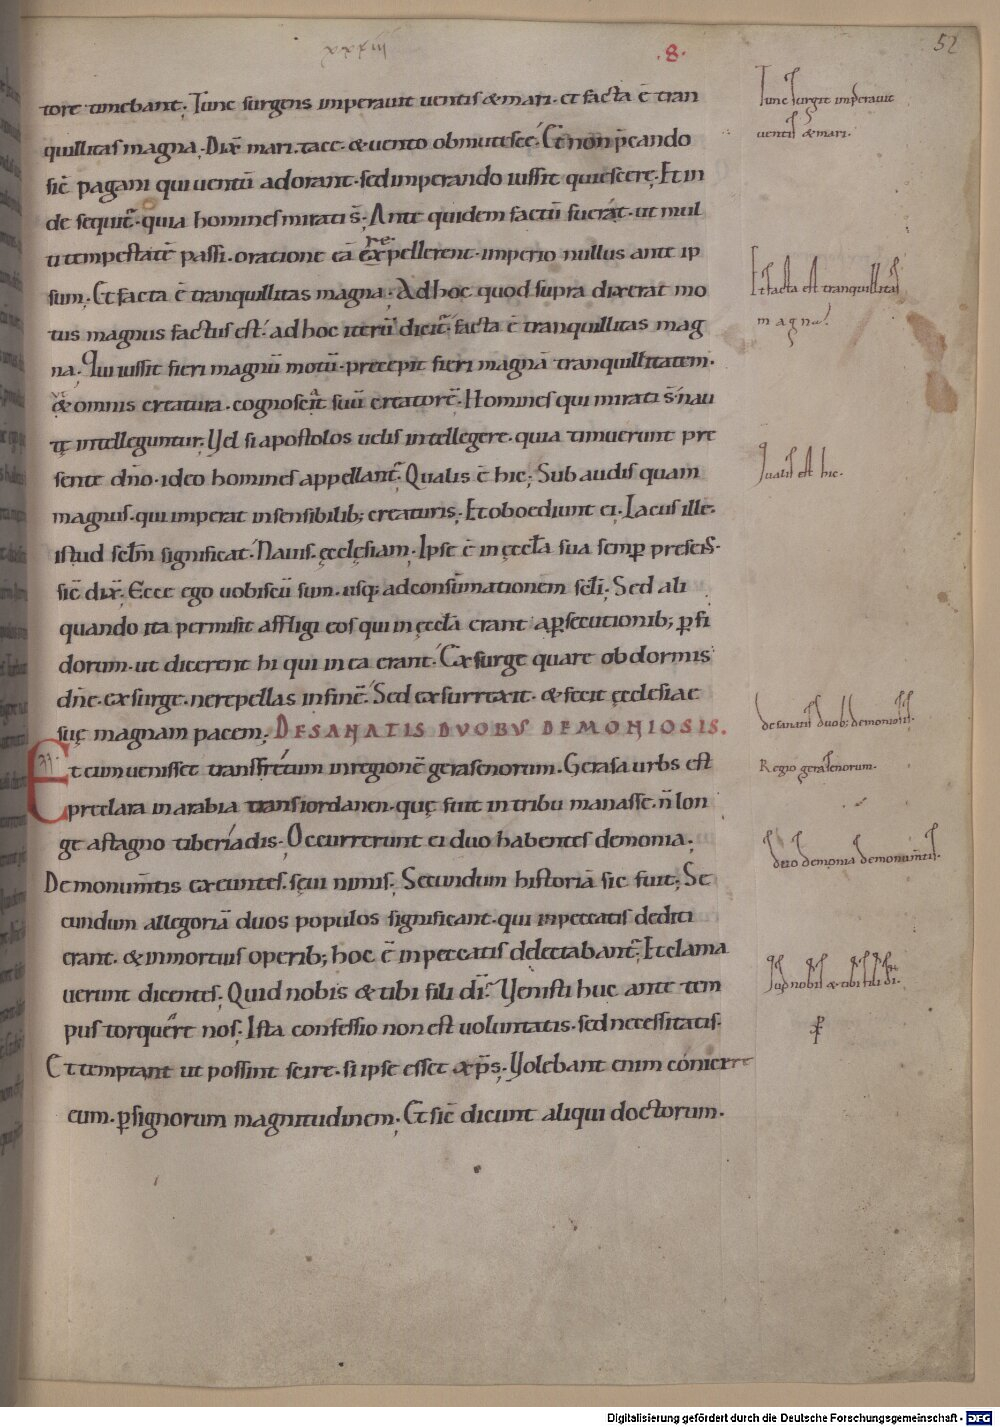 xxxiiij
.8.
52
tore timebant. Tunc surgens imperauit uentis & mari. et facta ē tran
quillitas magna. Dix̄ mari. tace. & uento obmutesce. Et non p̄cando
sic̄ pagani qui uentū adorant. sed imperando iussit quiescere. Et in
de sequit̄. quia homines mirati s̄. Ante quidem factū fuerat. ut mul
ti tempestatē passi. oratione eā expellerent. imperio nullus ante ip
re
sum. Et facta ē tranquillitas magna. Ad hoc quod supra dixerat mo
tus magnus factus est. ad hoc iterū dicit̄. facta ē tranquillitas mag
na. Qui iussit fieri magnū motū. precepit fieri magnā tranquillitatem.
& omnis creatura. cognoscat suū creatorē. Homines qui mirati s̄. nau
tę intelleguntur. Vel si apostolos uelis intellegere. quia timuerunt pre
sente dn̄o. ideo homines appellant̄. Qualis ē hic. Subaudis quam
magnus. qui imperat insensibilib; creaturis. Et oboediunt ei. Lacus ille.
istud sclm̄ significat. Nauis. ęcclęsiam. Ipse ē in ęccła sua semꝑ presens.
sic̄ dix̄. Ecce ego uobiscū sum. usq; ad consūmationēm scłi. Sed ali
quando ita permisit affligi eos qui in ęcclā erant a ꝑsecutionib; ꝑfi
dorum. ut dicerent hi qui in ea erant. Exsurge quare obdormis
dn̄e. exsurge. ne repellas in finē. Sed exsurrexit. & fecit ęcclesiae
suę magnam pacem. DE SANATIS DVOBVS DEMONIOSIS.
Et cum uenisset trans fretum in regionē gerasenorum. Gerasa urbs est
preclara in arabia trans iordanen. quę fuit in tribu manasse. n̄ lon
ge a stagno tiberiadis. Occurrerunt ei duo habentes demonia.
De monum̄tis exeuntes. sęui nimis. Secundum historiā sic fuit. Se
cundum allegoriā duos populos significant. qui in peccatis dediti
erant. & in mortuis operib; hoc ē in peccatis delectabant̄. Et clama
uerunt dicentes. Quid nobis & tibi fili dī. Venisti huc ante tem
pus torquere nos. Ista confessio non est uoluntatis. sed necessitatis.
Et temptant ut possint scire. si ipse esset xp̄s. Volebant enim cōnicere
eum. ꝑ signorum magnitudinem. Et sic̄ dicunt aliqui doctorum.
Tunc surgit imperauit
uentis & mari.
Et facta est tranquillitas
magna.
Qualis est hic.
de sanatis duob; demoniosis.
Regio gerasenorum.
duo demonia de monum̄tis.
Quid nobis & tibi fili dī.
Digitalisierung gefördert durch die Deutsche Forschungsgemeinschaft - DFG